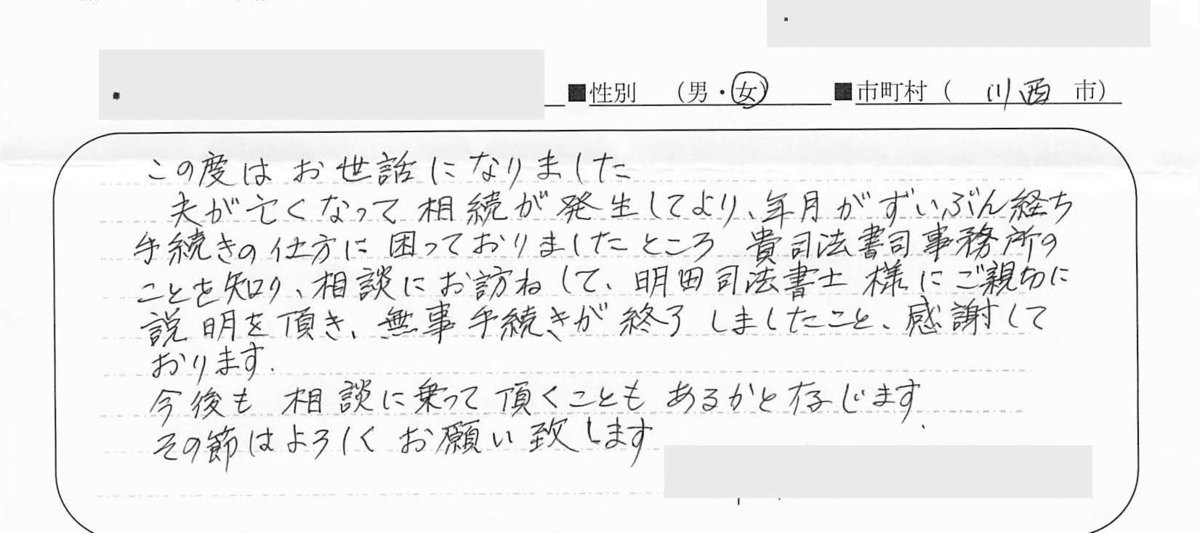 ■性別 （男・女） ■市町村（ 川西 市）
この度は お世話になりました
夫が亡くなって 相続が 発生してより、年月がずいぶん経ち
手続きの仕方に 困っておりましたところ 貴司法書司事務所の
ことを知り、相談にお訪ねして、明田司法書士 様にご親切に
説明を頂き、無事 手続きが 終了 しましたこと、感謝して
おります.
今後も 相談に乗って 頂くことも あるかと存じます.
その節はよろしく お願い致します